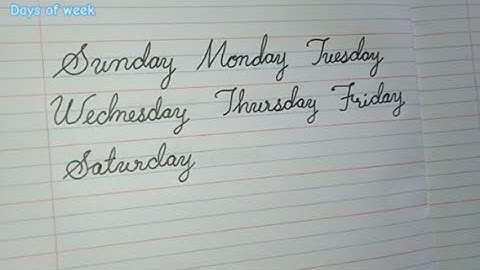 Days of week
Sunday Monday Tuesday
Wednesday Thursday Friday
Saturday